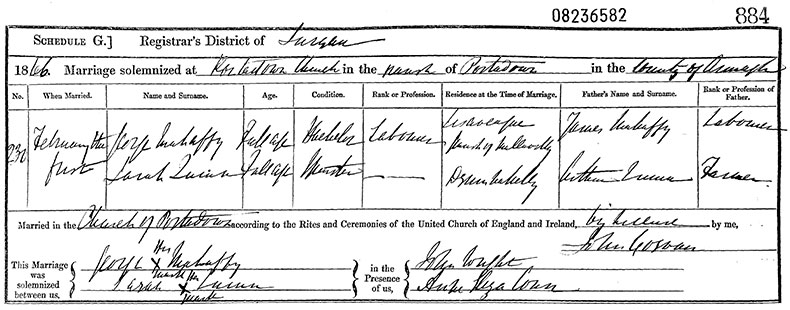 08236582 884
SCHEDULE G.] Registrar's District of Lurgan
1866. Marriage solemnized at Portadown Church in the parish of Portadown in the County of Armagh
No. When Married. Name and Surname. Age. Condition. Rank or Profession. Residence at the Time of Marriage. Father's Name and Surname. Rank or Profession of Father.
February the first George Mahaffy Full age Bachelor Labourer parish of James Mahaffy Labourer
Sarah Quinn Full age Spinster — Drumnakelly Arthur Quinn Farmer
Married in the Church of Portadown according to the Rites and Ceremonies of the United Church of England and Ireland, by license by me,
John
This Marriage was solemnized between us, George His X mark Mahaffy
Sarah Her X mark Quinn
in the Presence of us, John Wright
Ann Eliza